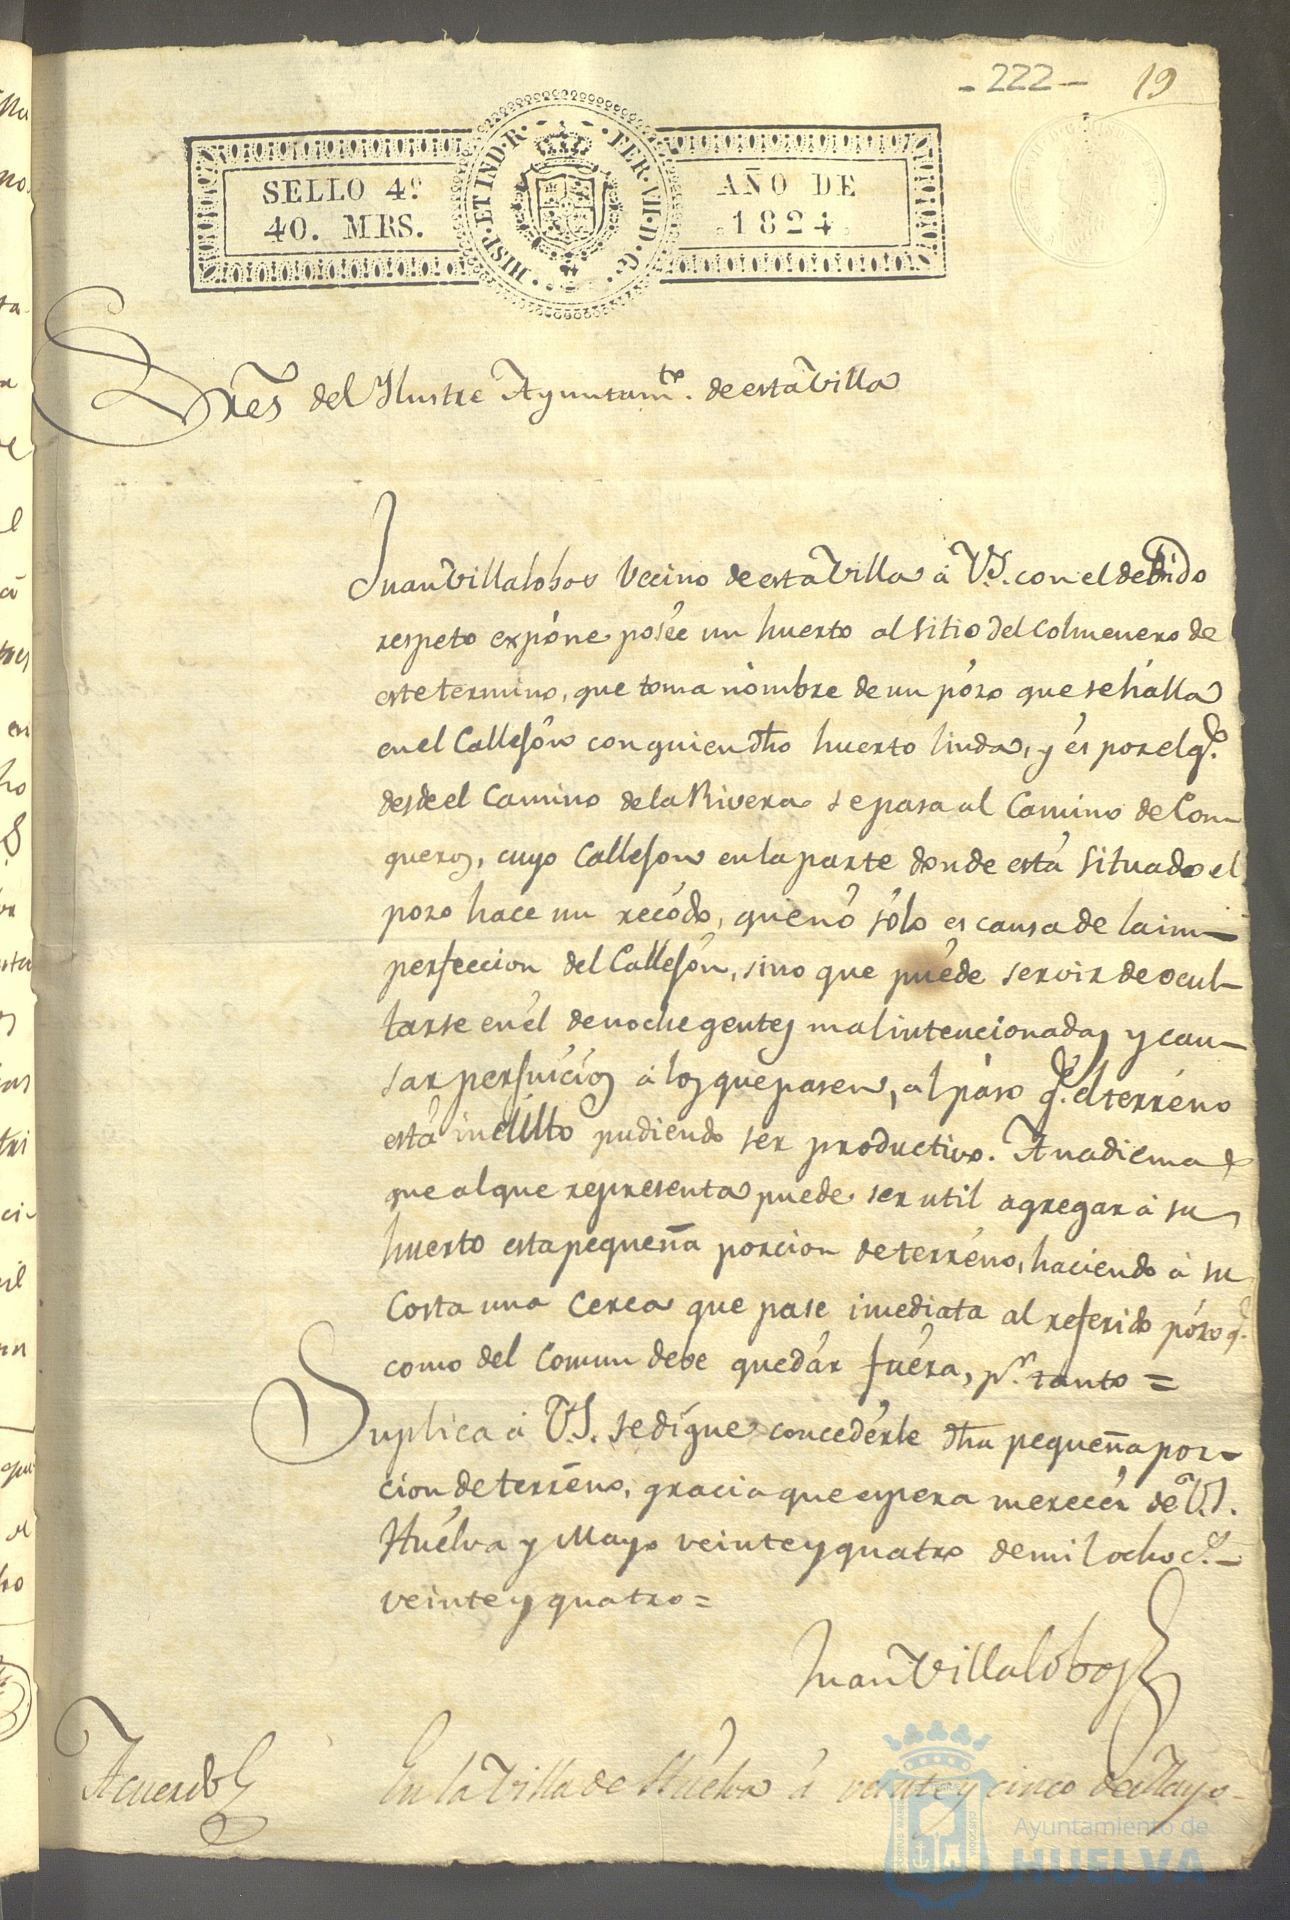 - 222 - 19
SELLO 4º
40. MRS.
HISP. ET IND. R. FER. VII. D. G.
AÑO DE
1824
Sres del Ilustre Ayuntamto. de esta Villa
Juan Villalobos Vecino de esta Villa á V.S. con el debido
respeto expóne poséé un huerto al sitio del colmenero de
este termino, que toma nómbre de un pózo que se hálla
en el Callejón con quien dho huerto linda, y és por el qe.
desde el Camino de la Rivera se pasa al Camino de Con-
queros, cuyo Callejon en la parte donde está situado el
pozo hace un recódo, que nó sólo es causa de la im-
perfeccion del Callejón, sino que puéde servir de ocul-
tarse en él de noche gentes mal intencionadas y cau-
sar perjuicios á los que pasen, al páso qe. el terréno
está incúlto pudiendo ser productivo. A nadie mas
que al que representa puede ser util agregar á su
huerto esta pequeña porcion de terréno, haciendo á su
Costa una Cerca que pase imediata al referido pózo qe.
como del Comun debe quedár fuéra, pr. tanto =
Suplica á V.S. se dígne concedérle dha pequeña por-
cion de terréno, gracia que espera merecér de V.S.
Huélva y Mayo veinte y quatro de mil ochoc.s
veinte y quatro=
Juan Villalobos
Acuerdo
En la Villa de Huelva á veinte y cinco de Mayo
Ayuntamiento de
HUELVA